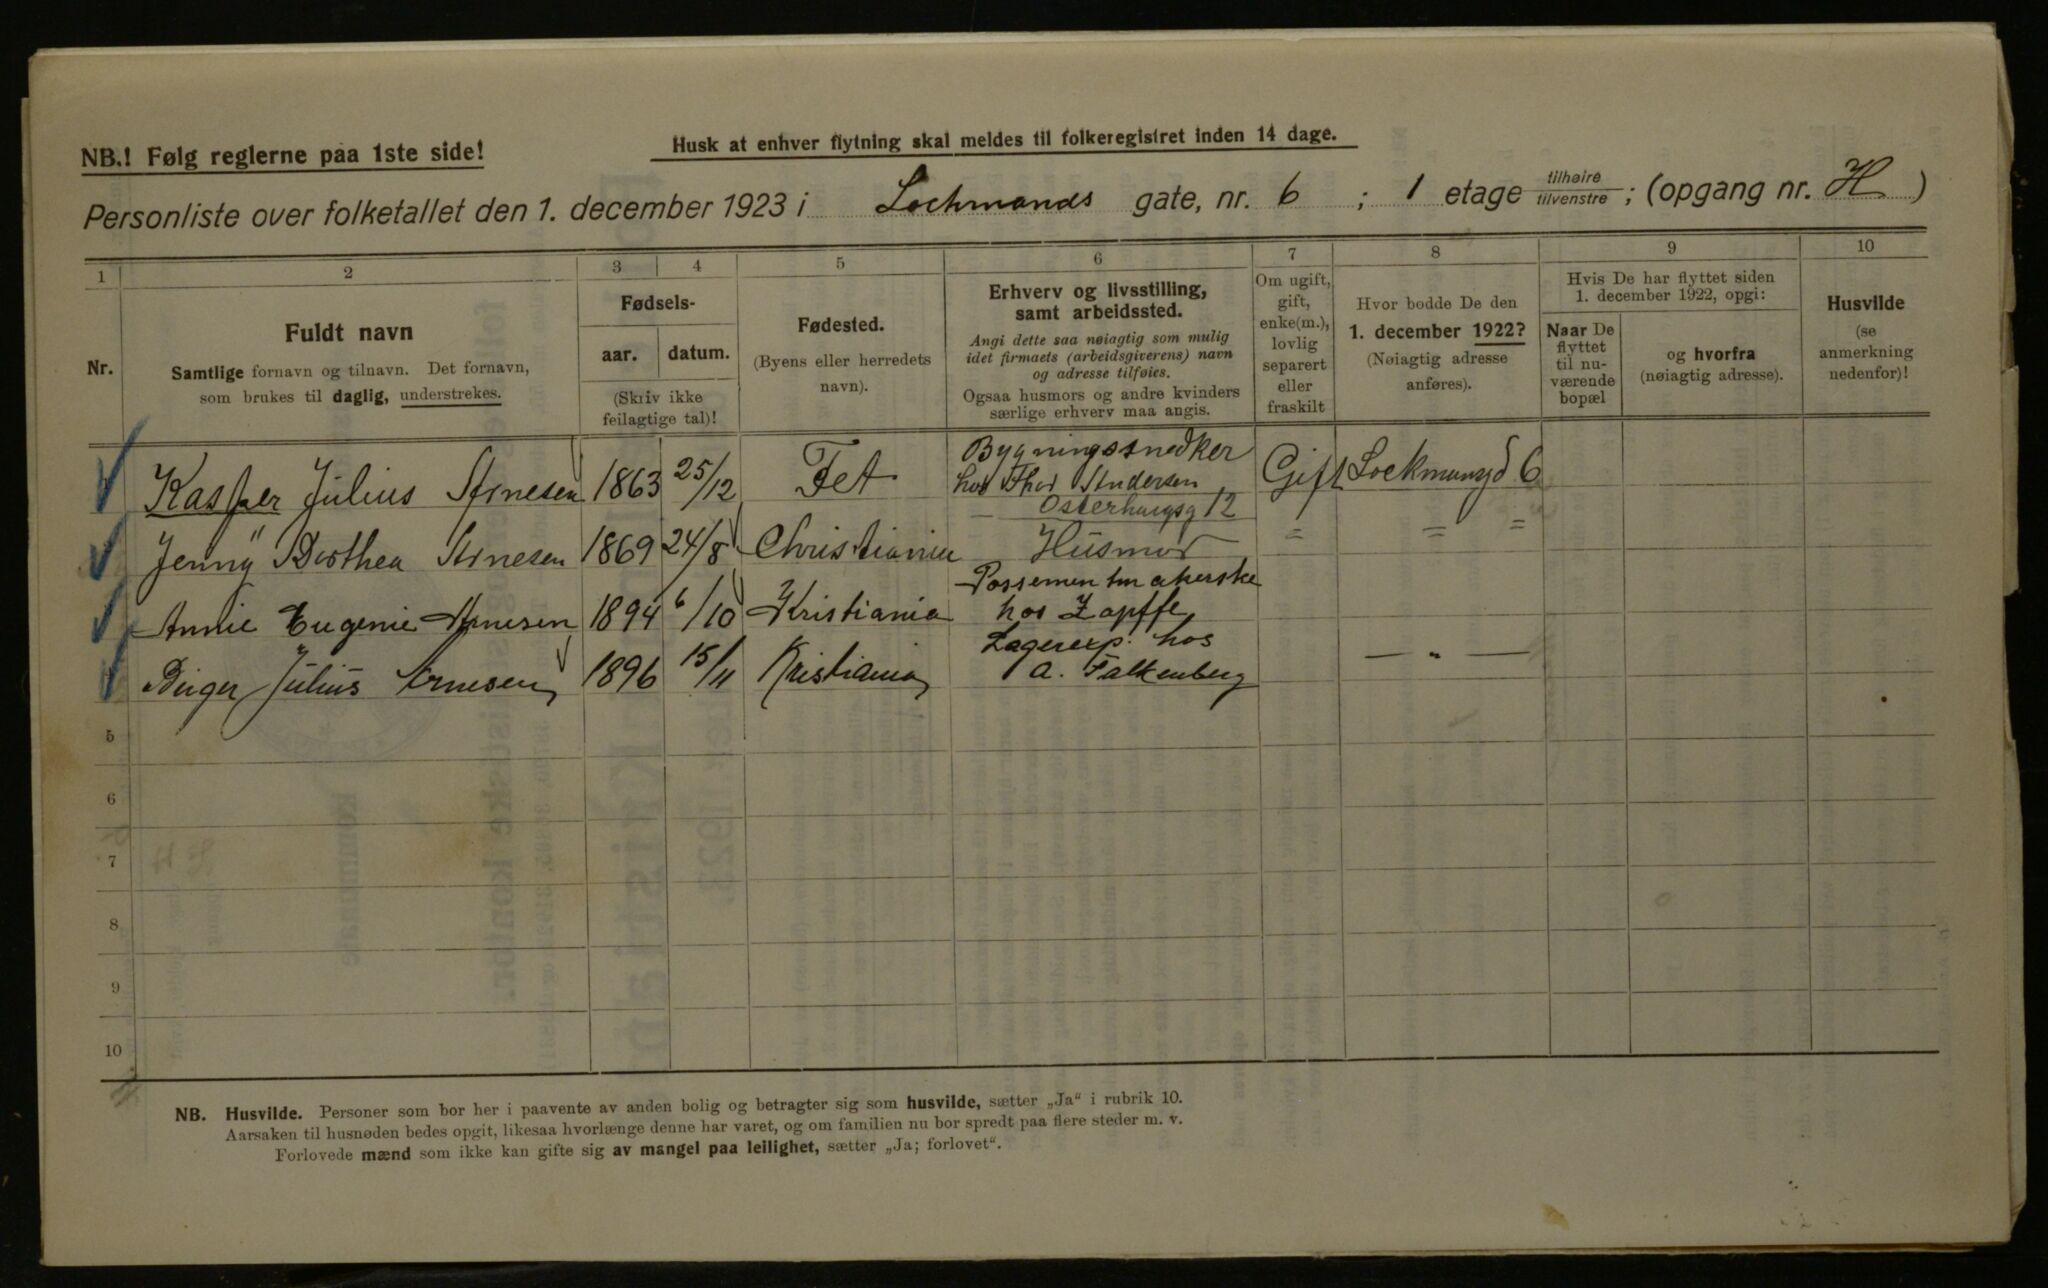 NB.! Følg reglerne paa 1ste side!
Husk at enhver flytning skal meldes til folkeregistret inden 14 dage.
Personliste over folketallet den 1. december 1923 i Lochmands gate, nr. 6 ; 1 etage tilhøire/tilvenstre ; (opgang nr. H )
1 2 3 4 5 6 7 8 9 10
Nr.
Fuldt navn
Samtlige fornavn og tilnavn. Det fornavn,
som brukes til daglig, understrekes.
Fødsels-
aar. datum.
(Skriv ikke
feilagtige tal)!
Fødested.
(Byens eller herredets
navn).
Erhverv og livsstilling,
samt arbeidssted.
Angi dette saa nøiagtig som mulig
idet firmaets (arbeidsgiverens) navn
og adresse tilføies.
Ogsaa husmors og andre kvinders
særlige erhverv maa angis.
Om ugift,
gift,
enke(m.),
lovlig
separert
eller
fraskilt
Hvor bodde De den
1. december 1922?
(Nøiagtig adresse
anføres).
Hvis De har flyttet siden
1. december 1922, opgi:
Naar De
flyttet
til nu-
værende
bopæl
og hvorfra
(nøiagtig adresse).
Husvilde
(se
anmerkning
nedenfor)!
Kasper Julius Arnesen 1863 25/12 Fet Bygningssnedker
hos Thor Andersen
Osterhausg 12 Gift Lockmansgd 6
Jenny Dorthea Arnesen 1869 24/8 Christiania Husmor = = =
Annie Eugenie Arnesen 1894 6/10 Kristiania Possementmakerske
hos Zapffe
Birger Julius Arnesen 1896 15/11 Kristiania Lagerexp. hos
A. Falkenberg — „ —
5
6
7
8
9
10
NB. Husvilde. Personer som bor her i paavente av anden bolig og betragter sig som husvilde, sætter „Ja“ i rubrik 10.
Aarsaken til husnøden bedes opgit, likesaa hvorlænge denne har varet, og om familien nu bor spredt paa flere steder m. v.
Forlovede mænd som ikke kan gifte sig av mangel paa leilighet, sætter „Ja; forlovet“.